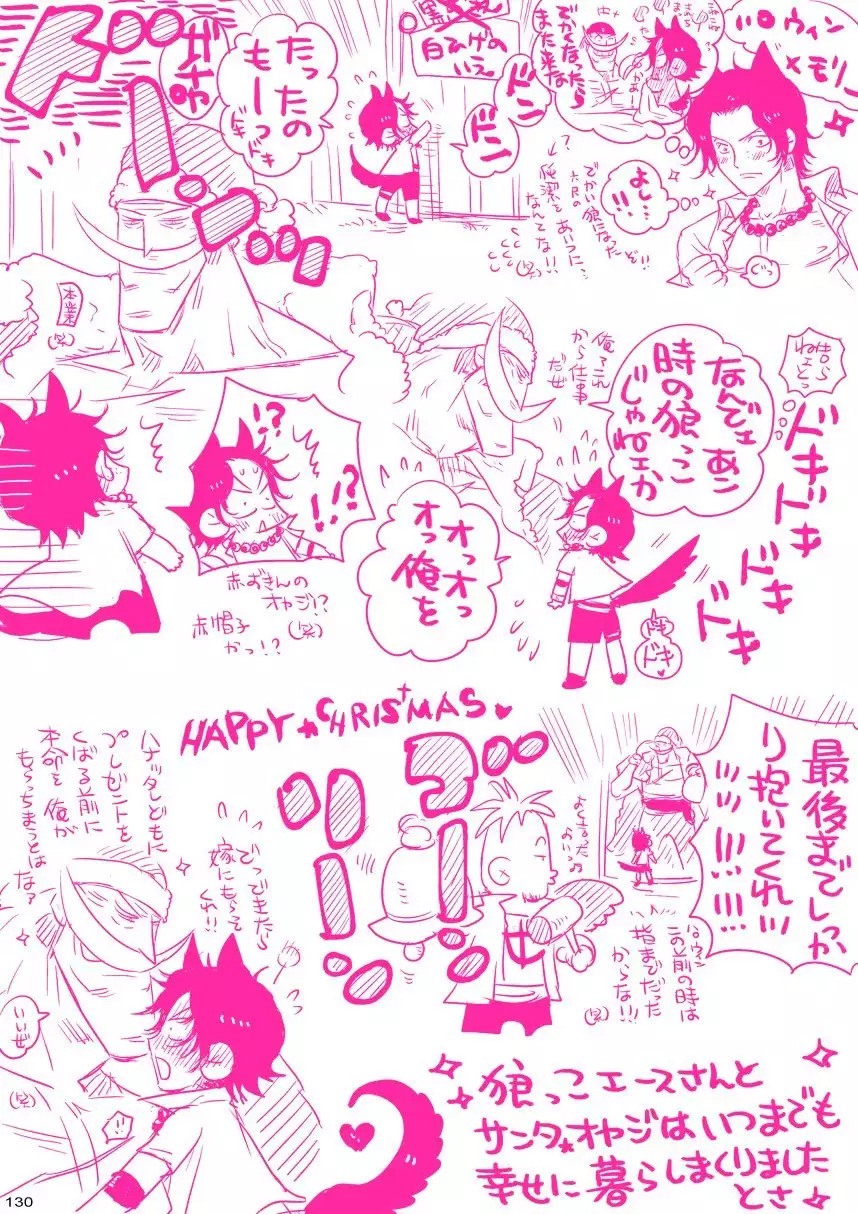 ハロウィン
メモリー
でかくなったら
また来な
よし…
!!!
ぐっ
でかい狼になった
ぞ!!
純潔をあいつに、
なんてな!!
(笑)
白ひげの
いえ
ドン
ドン
たったの
もーっ
ドキ
ドキ
ドドーン
本業
(笑)
なんでェあん
時の狼っこ
じゃねェか
俺ァこれ
から仕事
だぜ
ドキドキ
ドキ
ドキ
ドキ
ドキ
オっオっ
オっ俺を
!?
!!?
赤ずきんの
オヤジ!?
(笑)
赤帽子
かっ!?
HAPPY CHRISTMAS
最後までしっか
り抱いてくれ!!!
ハロウィン
この前の時は
指までだった
からな!!!
(笑)
ゴーン
ゴーン
でっ
できたら
嫁にもらって
くれ!!
ハナッタレどもに
プレゼントを
くばる前に
本命を俺が
もらっちまうとはな?
いいぜ
(笑)
狼っこエースさんと
サンタ★オヤジはいつまでも
幸せに暮らしまくりました
とさ
130